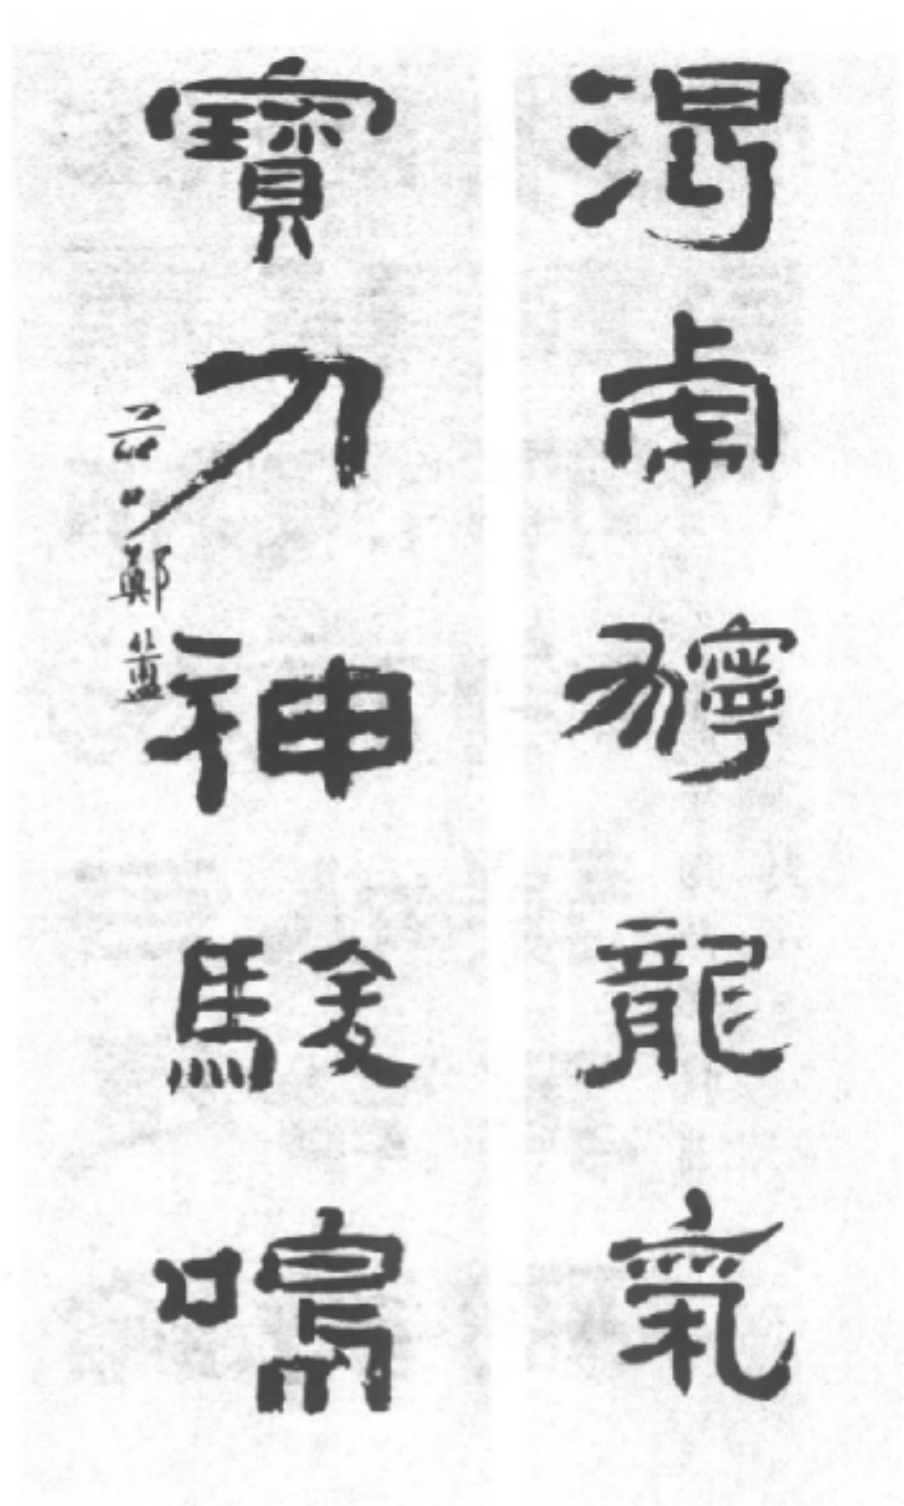 渴虎獰龍氣
寶刀神駿鳴
谷口鄭簠